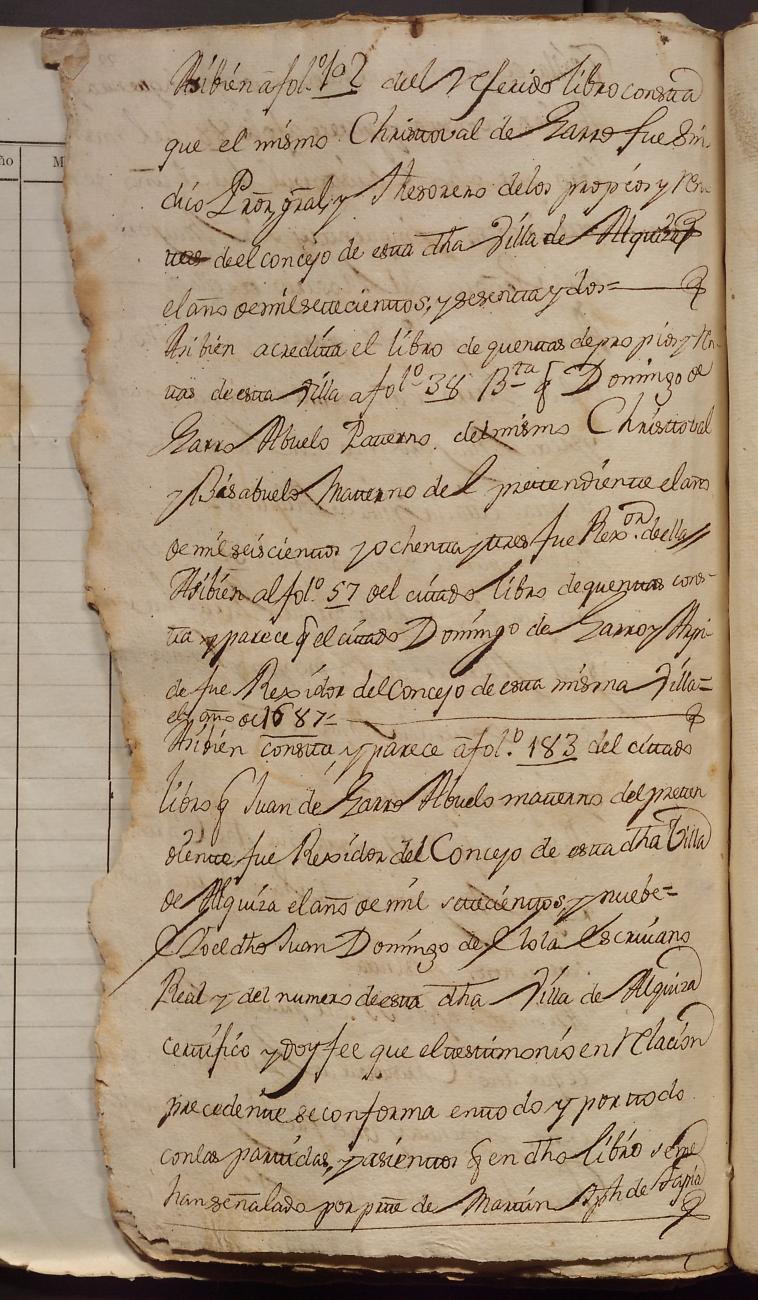 Asibien a fol.º 102 del referido libro consta
que el mismo Christoval de Garro fue Sin
dico Prōr gral, y Thesorero delos propios y ren
tas deel concejo de esta dħa Villa de Alquiza
el año de mil setecientos, y sesenta y dos=
Asibien acredita el libro de quentas de propios y Ren
tas de esta Villa a folº 38 Bta q̄ Domingo de
Garro Abuelo Paterno del mismo Christoval
y Bisabuelo Materno del pretendiente el año
de mil seiscientos y ochenta y tres fue Rexor. de ella
Asibien al folº 57 del citado libro de quentas cons-
ta y parece q̄ el citado Domingo de Garro y Aspi-
de fue Rexidor del Concejo de esta misma Villa=
el año de 1687=
Asibien consta, y parece a fol.º 183 del citado
libro q̄ Juan de Garro Abuelo materno del preten
diente fue Rexidor del Concejo de esta dħa Villa
de Alquiza el año de mil setecientos, y nuebe=
E Yo el dħo Juan Domingo de Elola Escrivano
Real y del numero de esta dħa Villa de Alquiza
certifico y doy fee que el testimonio en relacion
precedente se conforma en todo y por todo
con las partidas, y asientos q̄ en dħo libro seme
han señalado por pte de Martin Jph de Tapia